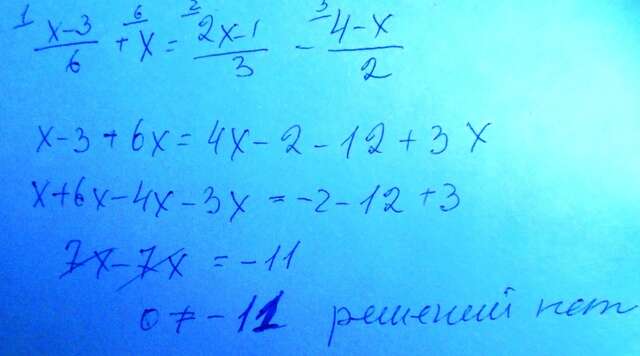 1 x-3/6 + 6 x = 2 2x-1/3 - 3 4-x/2
x-3+6x=4x-2-12+3x
x+6x-4x-3x=-2-12+3
7x-7x=-11
0≠-11 решений нет